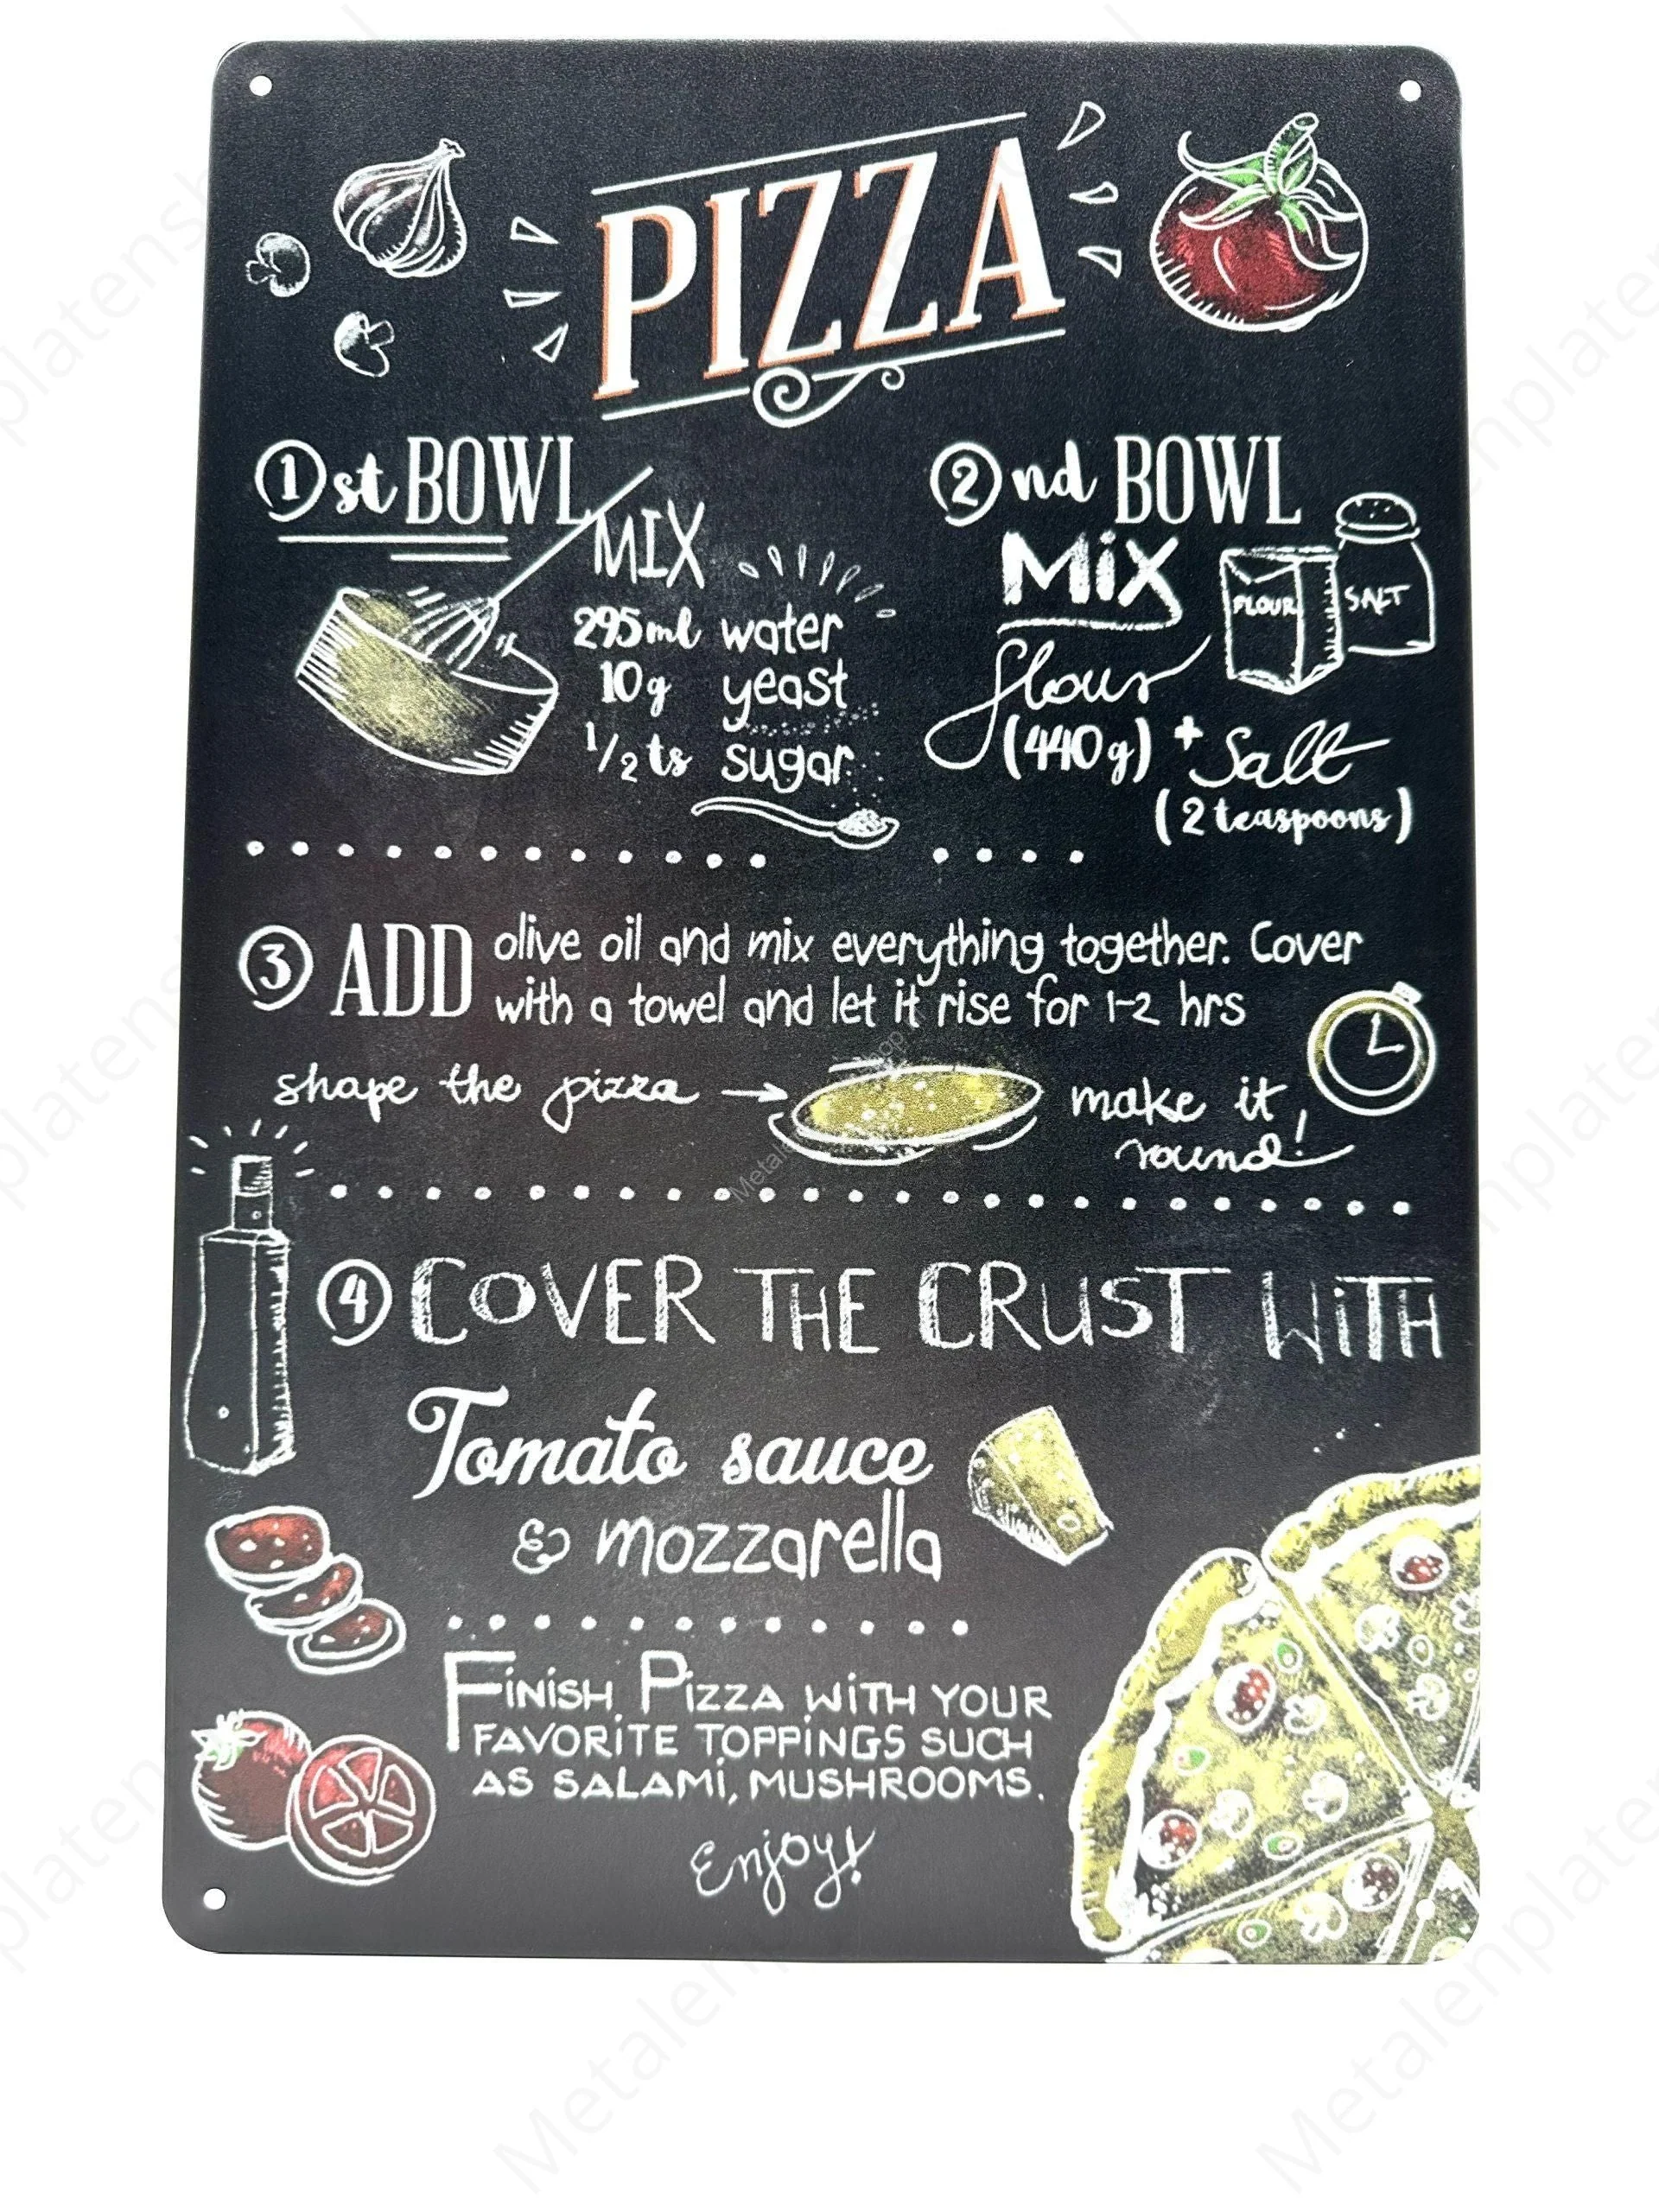 PIZZA
1 st BOWL
MIX
295ml water
10g yeast
1/2 ts sugar
2 nd BOWL
MiX
FLOUR
SALT
flour
(440g) + Salt
(2 teaspoons)
3 ADD olive oil and mix everything together. Cover
with a towel and let it rise for 1-2 hrs
shape the pizza → make it
round!
4 COVER THE CRUST WiTH
Tomato sauce
& mozzarella
FiNiSH PiZZA WiTH YOUR
FAVORiTE TOPPiNGS SUCH
AS SALAMi, MUSHROOMS.
Enjoy!